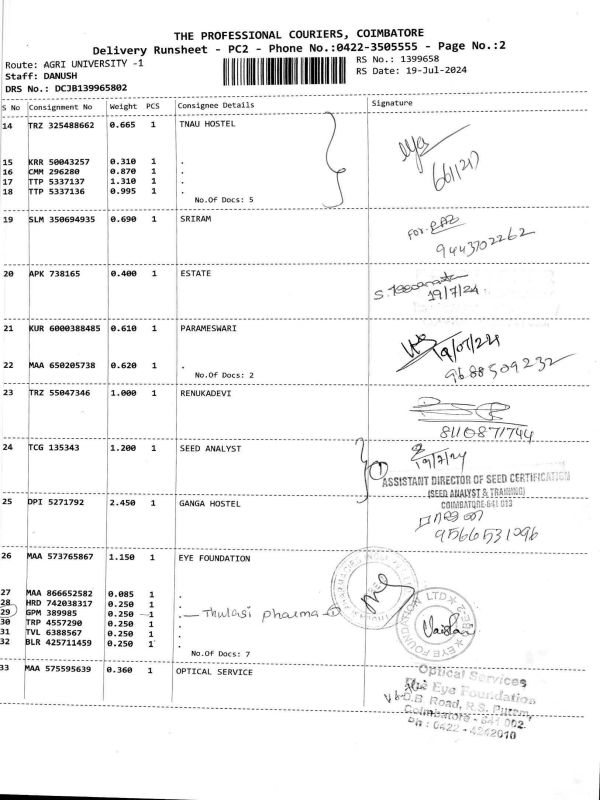 THE PROFESSIONAL COURIERS, COIMBATORE
Delivery Runsheet - PC2 - Phone No.:0422-3505555 - Page No.:2
Route: AGRI UNIVERSITY -1
RS No.: 1399658
Staff: DANUSH
RS Date: 19-Jul-2024
DRS No.: DCJB139965802
S No Consignment No Weight PCS Consignee Details Signature
14 TRZ 325488662 0.665 1 TNAU HOSTEL
15 KRR 50043257 0.310 1 .
16 CMM 296280 0.870 1 .
17 TTP 5337137 1.310 1 .
18 TTP 5337136 0.995 1 .
No.Of Docs: 5
6611217
19 SLM 350694935 0.690 1 SRIRAM
For.
9443702262
20 APK 738165 0.400 1 ESTATE
19/7/24.
21 KUR 6000388485 0.610 1 PARAMESWARI
19/07/24
22 MAA 650205738 0.620 1 .
No.Of Docs: 2
9688509232
23 TRZ 55047346 1.000 1 RENUKADEVI
8110871744
24 TCG 135343 1.200 1 SEED ANALYST
19/7/24
1
ASSISTANT DIRECTOR OF SEED CERTIFICATION
(SEED ANALYST & TRAINING)
COIMBATORE-641 013
25 DPI 5271792 2.450 1 GANGA HOSTEL
9566531096
26 MAA 573765867 1.150 1 EYE FOUNDATION
27 MAA 866652582 0.085 1 .
28 HRD 742038317 0.250 1 .
29 GPM 389985 0.250 1 . - Thulasi pharma - 1
30 TRP 4557290 0.250 1 .
31 TVL 6388567 0.250 1 .
32 BLR 425711459 0.250 1 .
No.Of Docs: 7
EYE FOUNDATION LTD
33 MAA 575595639 0.360 1 OPTICAL SERVICE
Optical Services
The Eye Foundation
D.B. Road, R.S. Puram,
Coimbatore - 641 002.
Ph : 0422 - 4242010